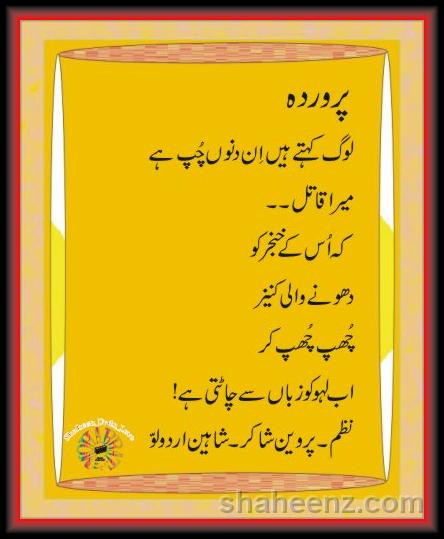 پروردہ
لوگ کہتے ہیں اِن دنوں چُپ ہے
میرا قاتل ۔۔
کہ اُس کے خنجر کو
دھونے والی کنیز
چُھپ چُھپ کر
اب لہو کو زباں سے چاٹتی ہے!
نظم ۔ پروین شاکر ۔ شاہین اردو لوّ
shaheenz.com